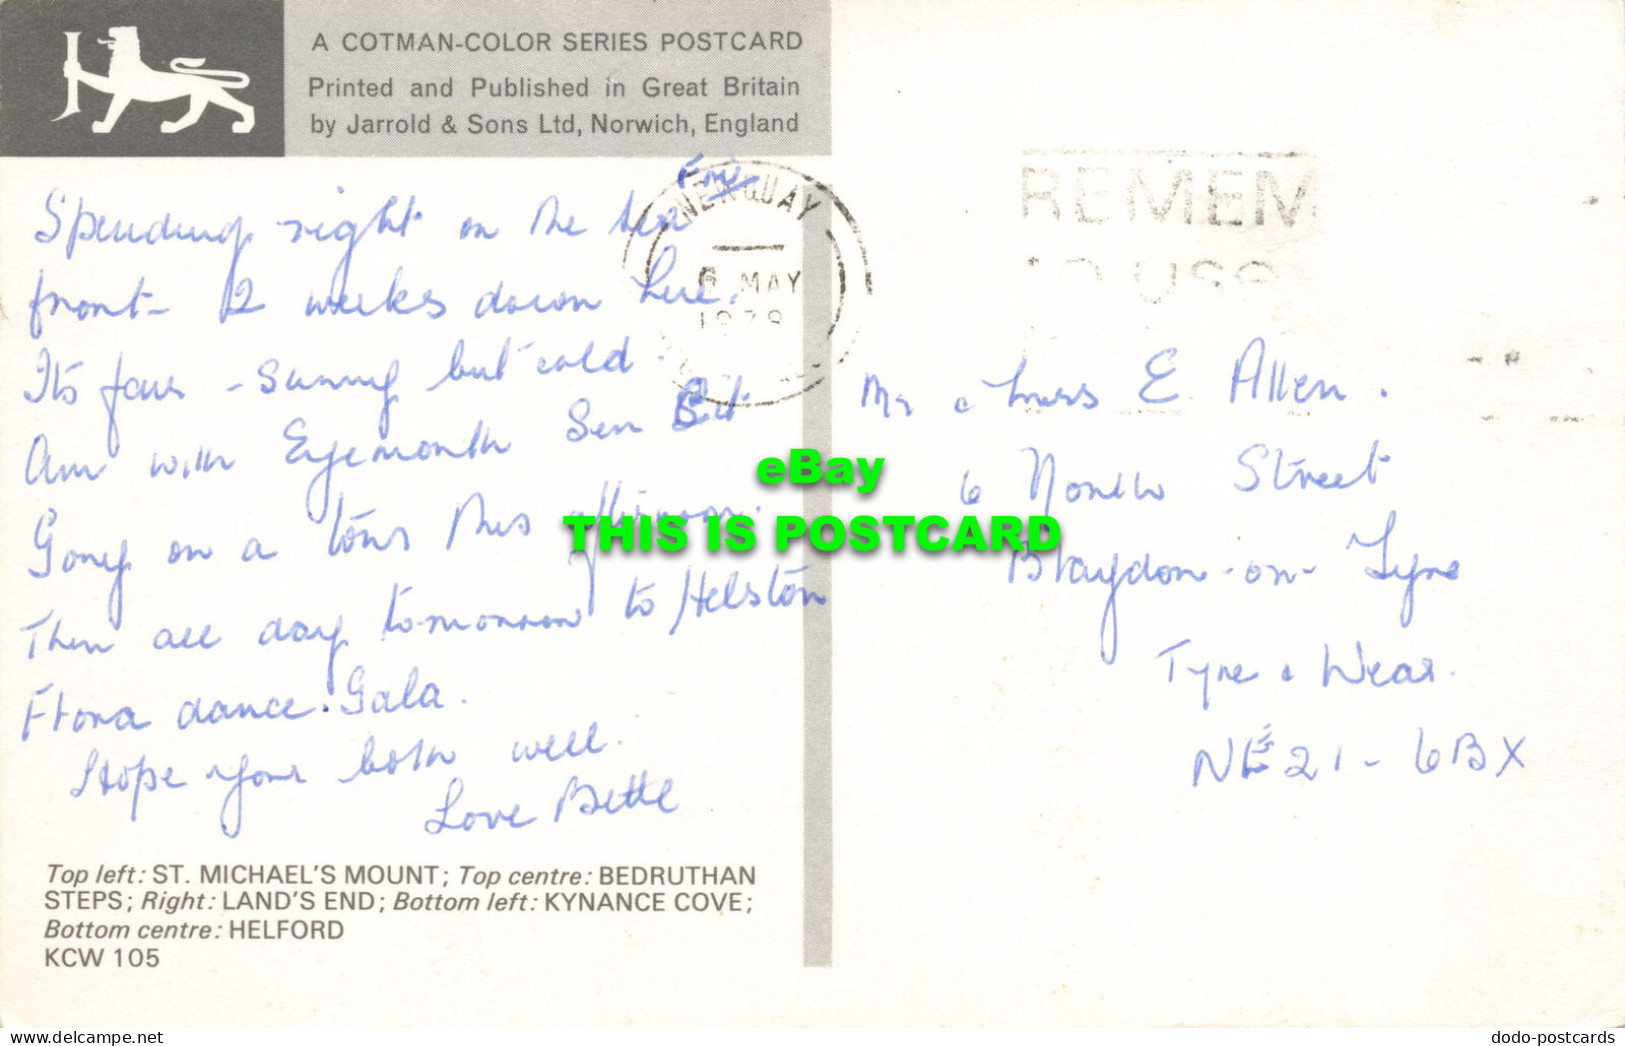 A COTMAN-COLOR SERIES POSTCARD
Printed and Published in Great Britain
by Jarrold & Sons Ltd, Norwich, England
Fri
Spending right on the sea
front - 2 weeks down here.
Its fair - sunny but cold.
Am with Eyemouth Sen Cit
Going on a tour this afternoon.
Then all day tomorrow to Helston
Flora dance. Gala.
Hope your both well.
Love Bette
Top left: ST. MICHAEL'S MOUNT; Top centre: BEDRUTHAN
STEPS; Right: LAND'S END; Bottom left: KYNANCE COVE;
Bottom centre: HELFORD
KCW 105
NEWQUAY
6 MAY
REMEM
USE
Mr & Mrs E Allen.
6 North Street
Blaydon-on-Tyne
Tyne & Wear.
NE21-6BX
eBay
THIS IS POSTCARD
delcampe.net
dodo-postcards